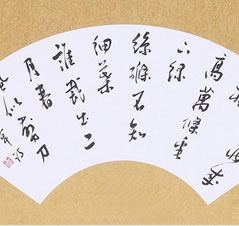 妝成
高萬條垂
下綠
絲絛不知
細葉
誰裁出二
月春剪刀